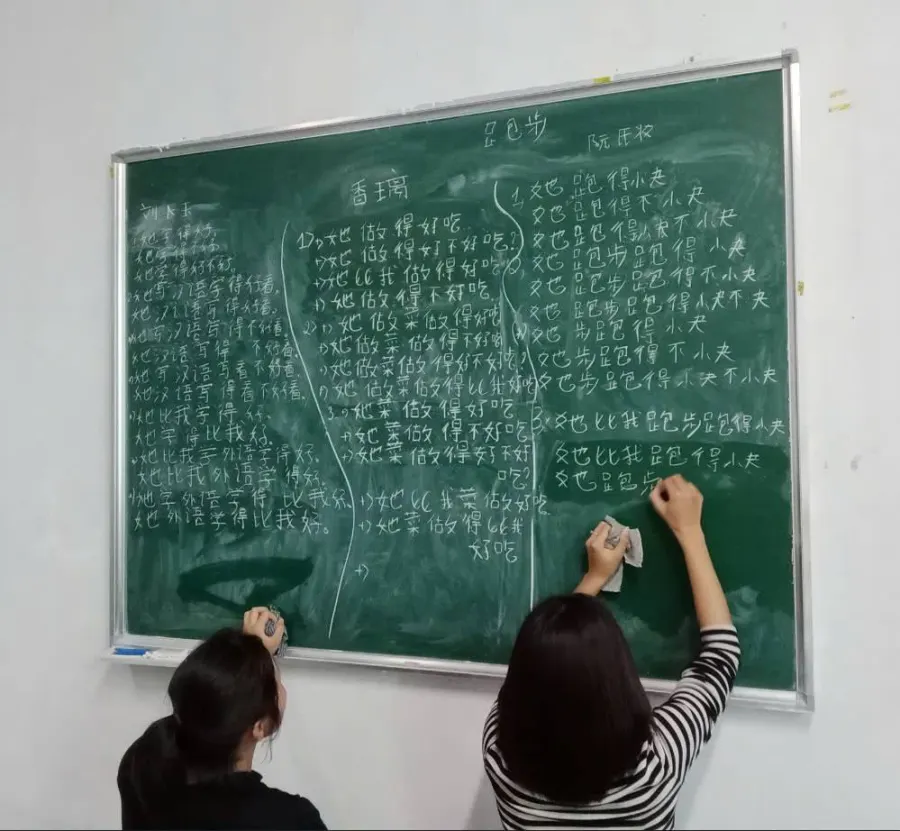 跑步
阮氏妆
香璃
刘玉
她学得好。
她学得好不好。
她写汉语写得好看。
她汉语写得好看。
她写汉语写得不好看。
她汉语写得不好看。
她写汉语写得看不好看。
她汉语写得看不好看。
她比我学得好。
她学得比我好。
她比我学外语学得好。
她比我外语学得好。
她学外语学得比我好。
她外语学得比我好。
1) 她做得好吃
她做得好不好吃?
她比我做得好吃
她做得不好吃
2) 她做菜做得好吃
她做菜做得不好吃
她做菜做得好不好吃?
她做菜做得比我好吃
3. 她菜做得好吃
+) 她菜做得不好吃
+) 她菜做得好不好
吃?
+) 她比我菜做得好吃
+) 她菜做得比我
好吃
+)
1. 她跑得快
她跑得不快
她跑得快不快
她跑步跑得快
她跑步跑得不快
她跑步跑得快不快
她步跑得快
她步跑得不快
她步跑得快不快
3. 她比我跑步跑得快
她比我跑得快
她跑步